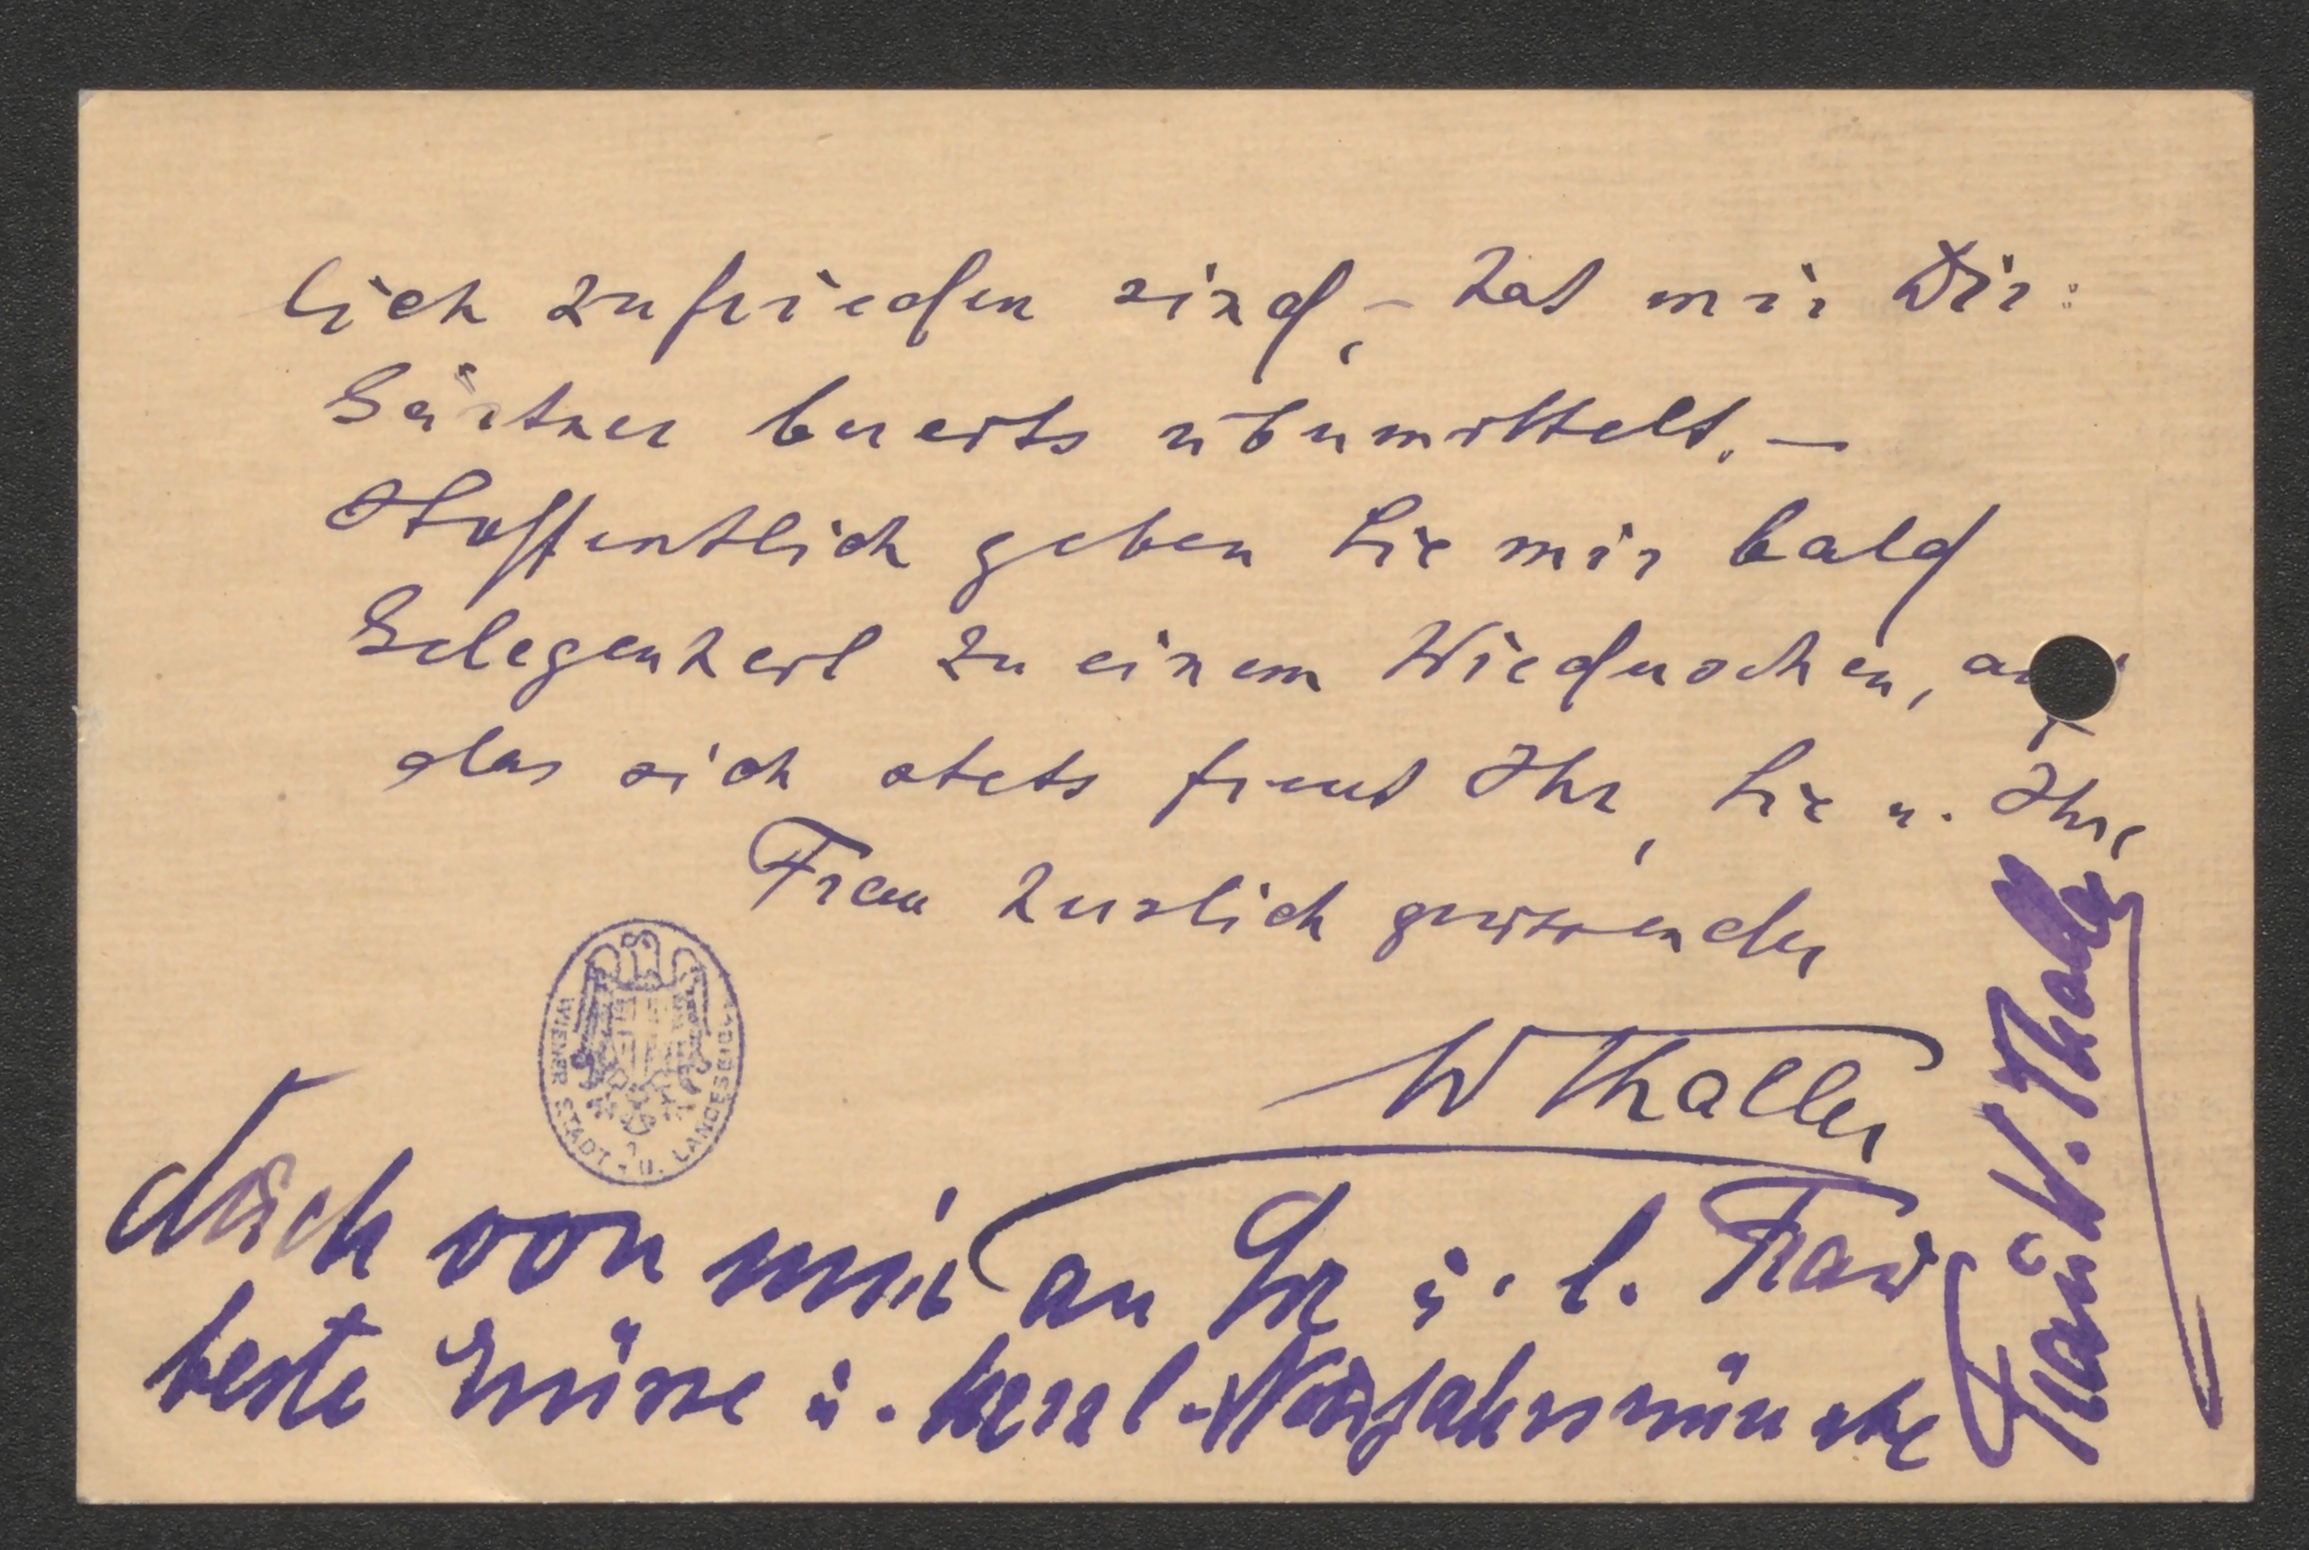 lich zufrieden sind, – hat mir Dir:
Gärtner bereits übermittelt. –
Hoffentlich geben Sie mir bald
Gelegenheit zu einem Wiedersehen, auf
das sich stets freut Ihr, Sie u. Ihre
Frau herzlich grüssender
W Thaller
WIENER STADT- U. LANDESBIBL.
Auch von mir an Sie u. l. Frau
beste Grüsse u. herzl. Neujahrswünsche
Frau W. Thaller